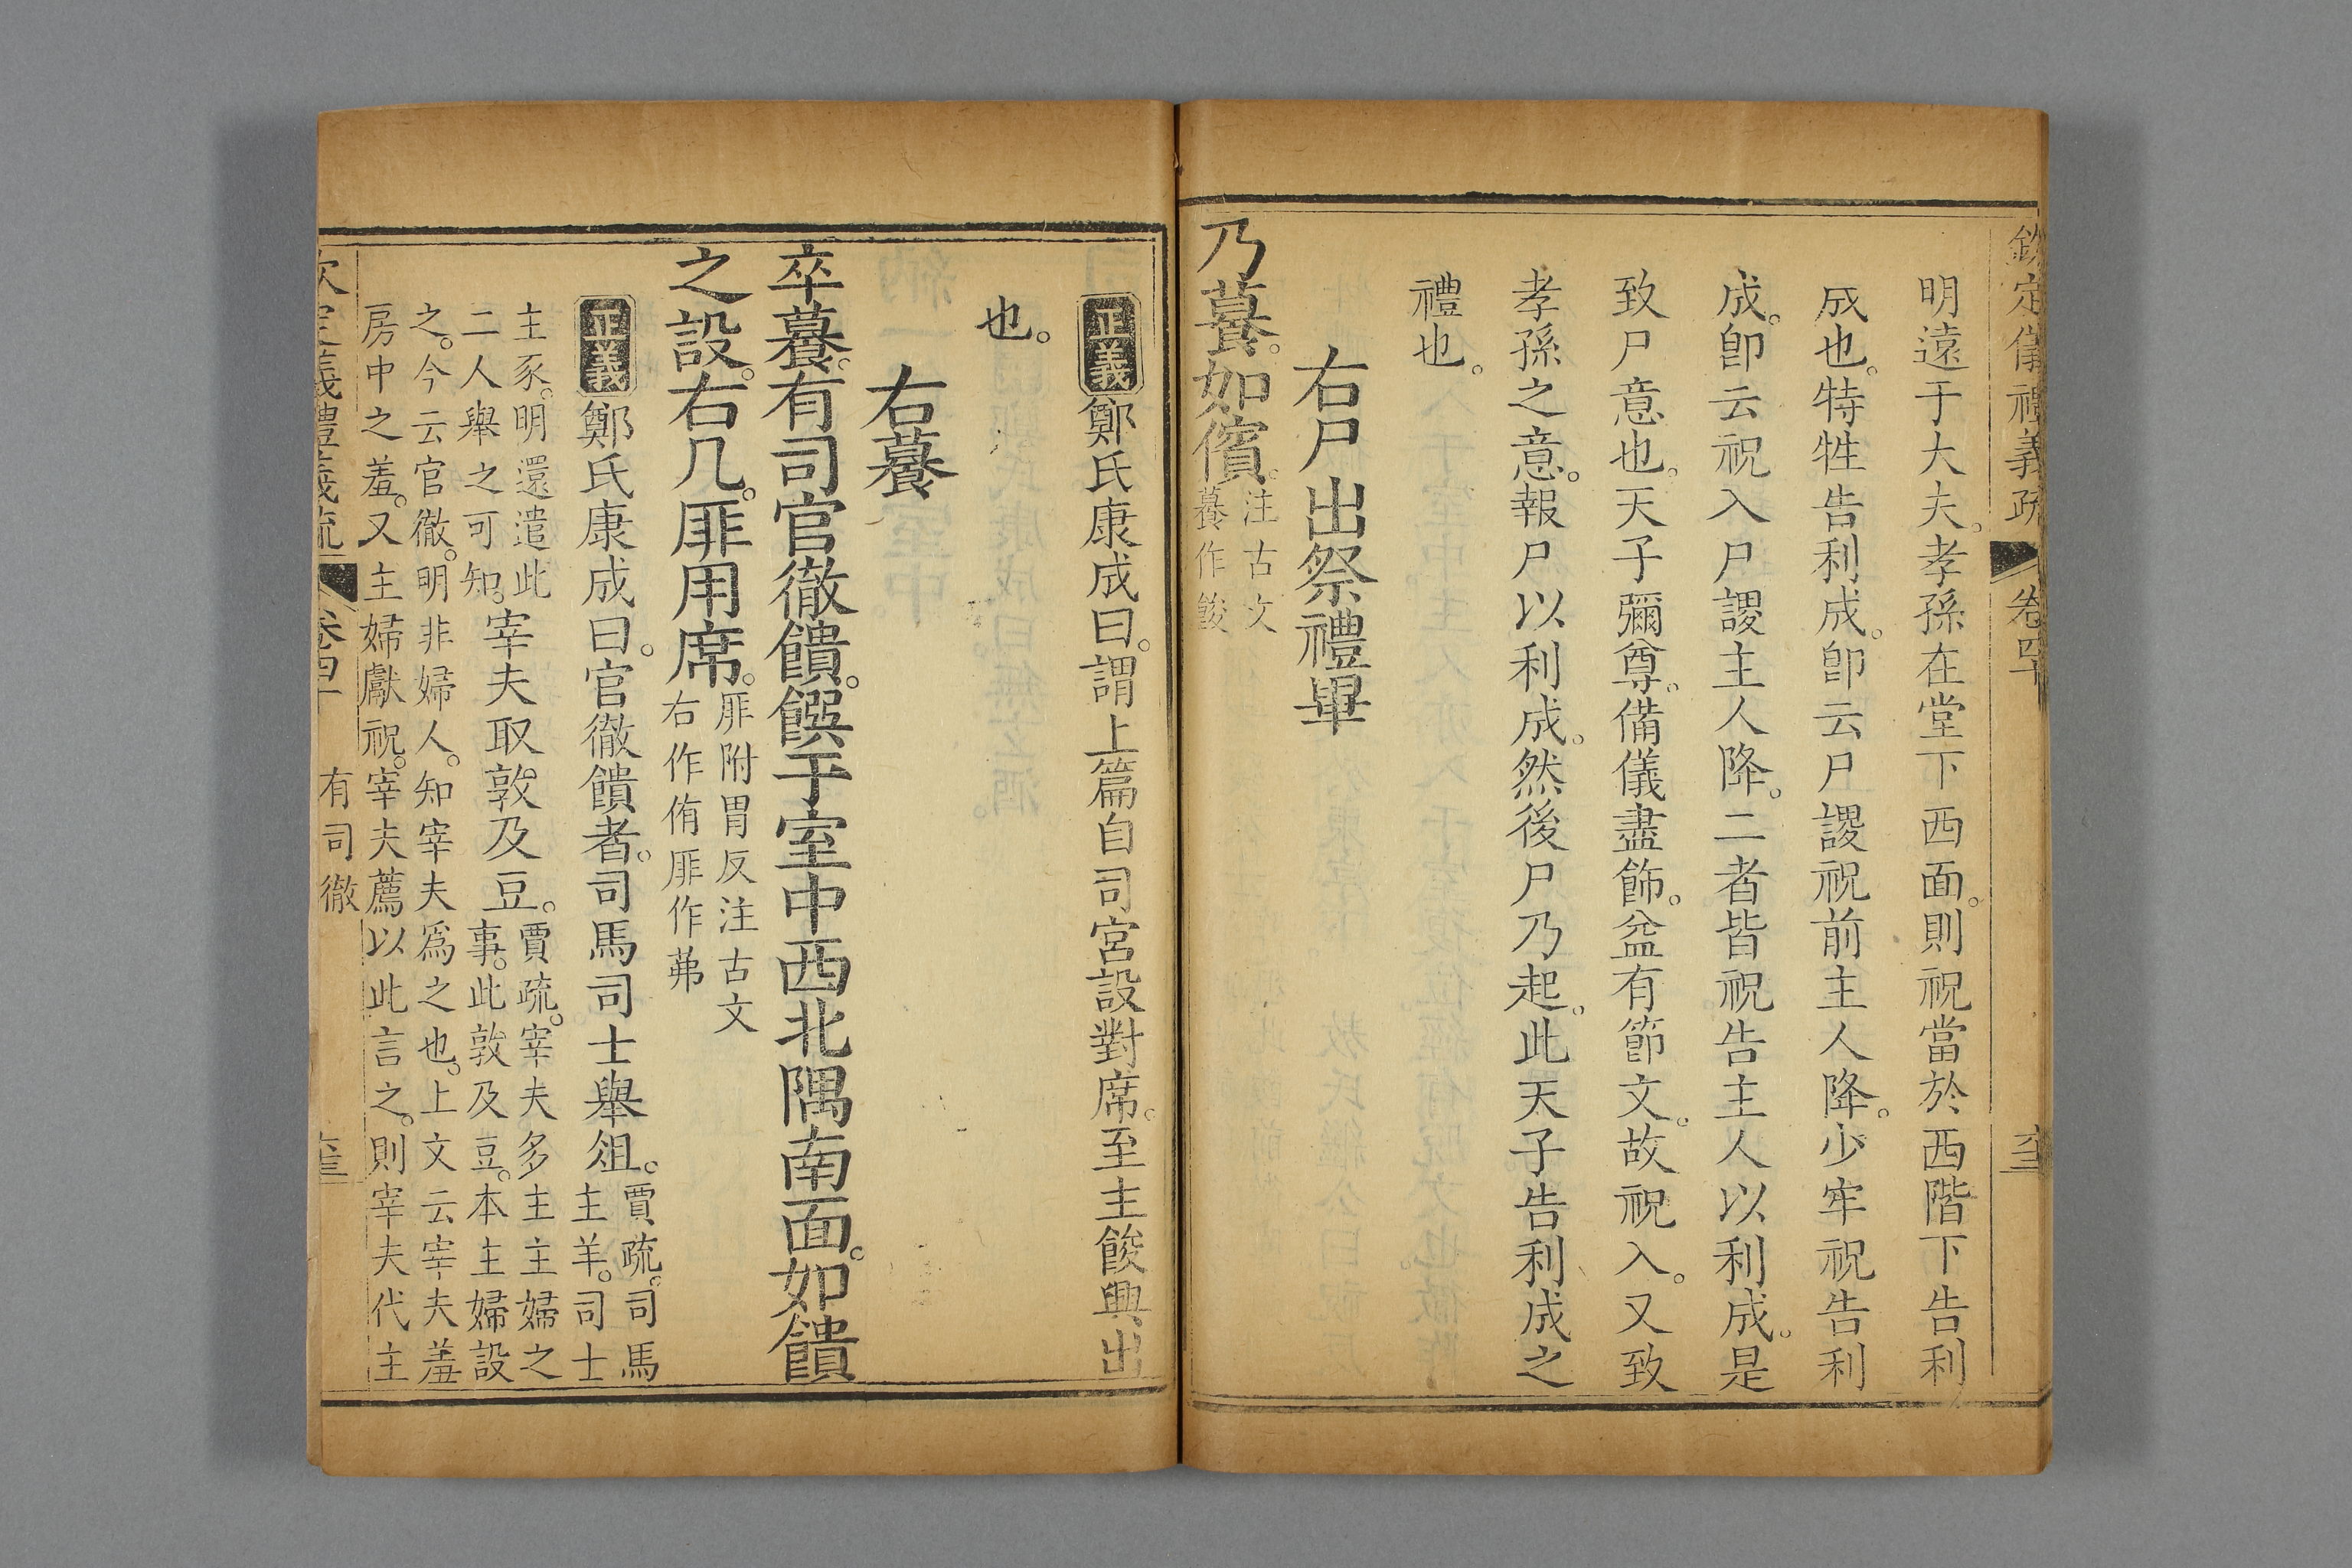 欽定儀禮義疏 卷四十
明遠于大夫。孝孫在堂下西面。則祝當於西階下告利
成也。特牲告利成。卽云尸謖祝前主人降。少牢祝告利
成。卽云祝入尸謖主人降。二者皆祝告主人以利成。是
致尸意也。天子彌尊。備儀盡飾。益有節文。故祝入。又致
孝孫之意。報尸以利成。然後尸乃起。此天子告利成之
禮也。
右尸出祭禮畢
乃䭆。如儐。注古文
䭆作餕
正義鄭氏康成曰。謂上篇自司宮設對席。至主餕興出
也。
右䭆
卒䭆。有司官徹饋。饌于室中西北隅南面。如饋
之設。右几。厞用席。厞附胃反注古文
右作侑厞作茀
正義鄭氏康成曰。官徹饋者。司馬司士舉俎。賈疏。司馬
主羊。司士
主豕。明還遣此
二人舉之可知。宰夫取敦及豆。賈疏。宰夫多主主婦之
事。此敦及豆。本主婦設
之。今云官徹。明非婦人。知宰夫爲之也。上文云宰夫羞
房中之羞。又主婦獻祝。宰夫薦以此言之。則宰夫代主
欽定儀禮義疏 卷四十 有司徹